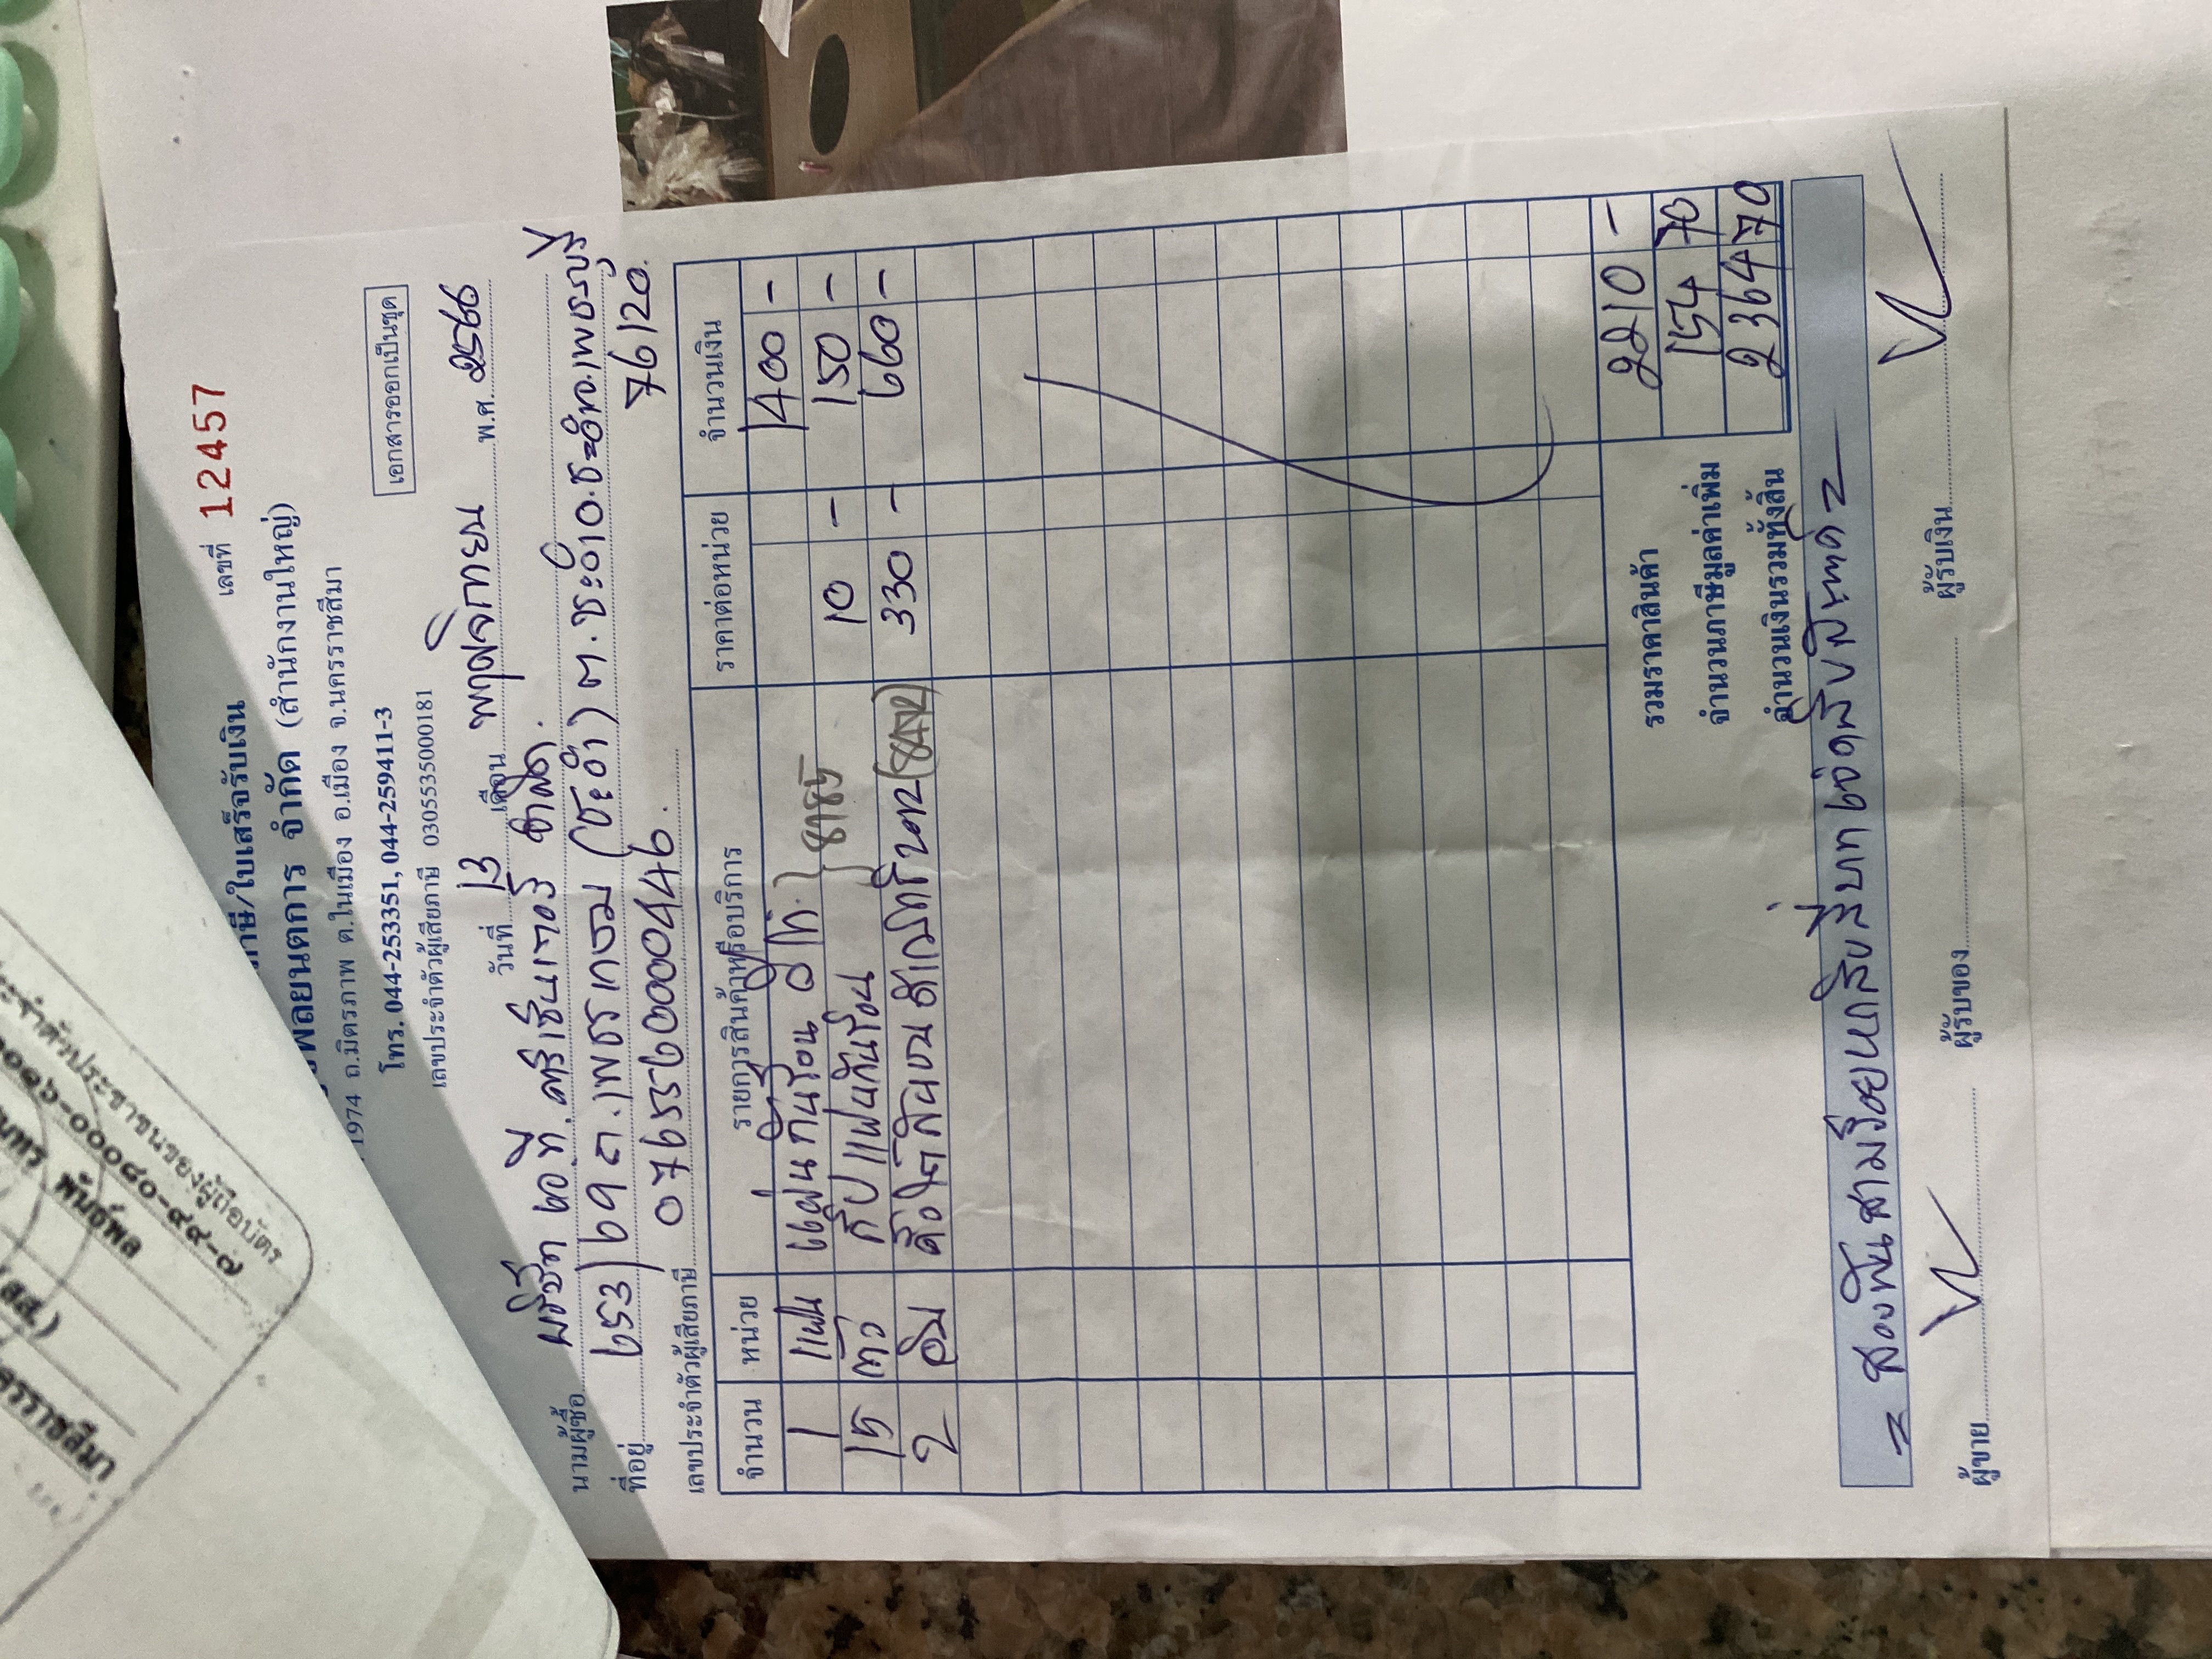 เลขที่ 12457
ภาษี/ใบเสร็จรับเงิน
พลยนตการ จำกัด (สำนักงานใหญ่)
1974 ถ.มิตรภาพ ต.ในเมือง อ.เมือง จ.นครราชสีมา
โทร. 044-253351, 044-259411-3
เอกสารออกเป็นชุด
เลขประจำตัวผู้เสียภาษี 0305535000181
วันที่ 13 เดือน พฤศจิกายน พ.ศ. 2566
นามผู้ซื้อ บริษัท เอที. ศรีเซ็นเตอร์ จำกัด.
ที่อยู่ 653/69 ถ.เพชรเกษม (ชะอำ) ต.ชะอำ อ.ชะอำ จ.เพชรบุรี
76120.
เลขประจำตัวผู้เสียภาษี 0765560000446.
จำนวน หน่วย รายการสินค้าหรือบริการ ราคาต่อหน่วย จำนวนเงิน
1 แผ่น แผ่นกันร้อน 1400 -
15 ตัว กิ๊ปแผ่นกันร้อน 10 - 150 -
2 330 - 660 -
รวมราคาสินค้า 2210 -
จำนวนภาษีมูลค่าเพิ่ม 154 70
จำนวนเงินรวมทั้งสิ้น 2364 70
= สองพันสามร้อยหกสิบสี่บาทเจ็ดสิบสตางค์ =
ผู้ขาย ผู้รับของ ผู้รับเงิน
ประจำตัวประชาชนของผู้ถือบัตร
๐๐๑๖-๐๐๐๘๐-๙๙-๗
พันธ์พล